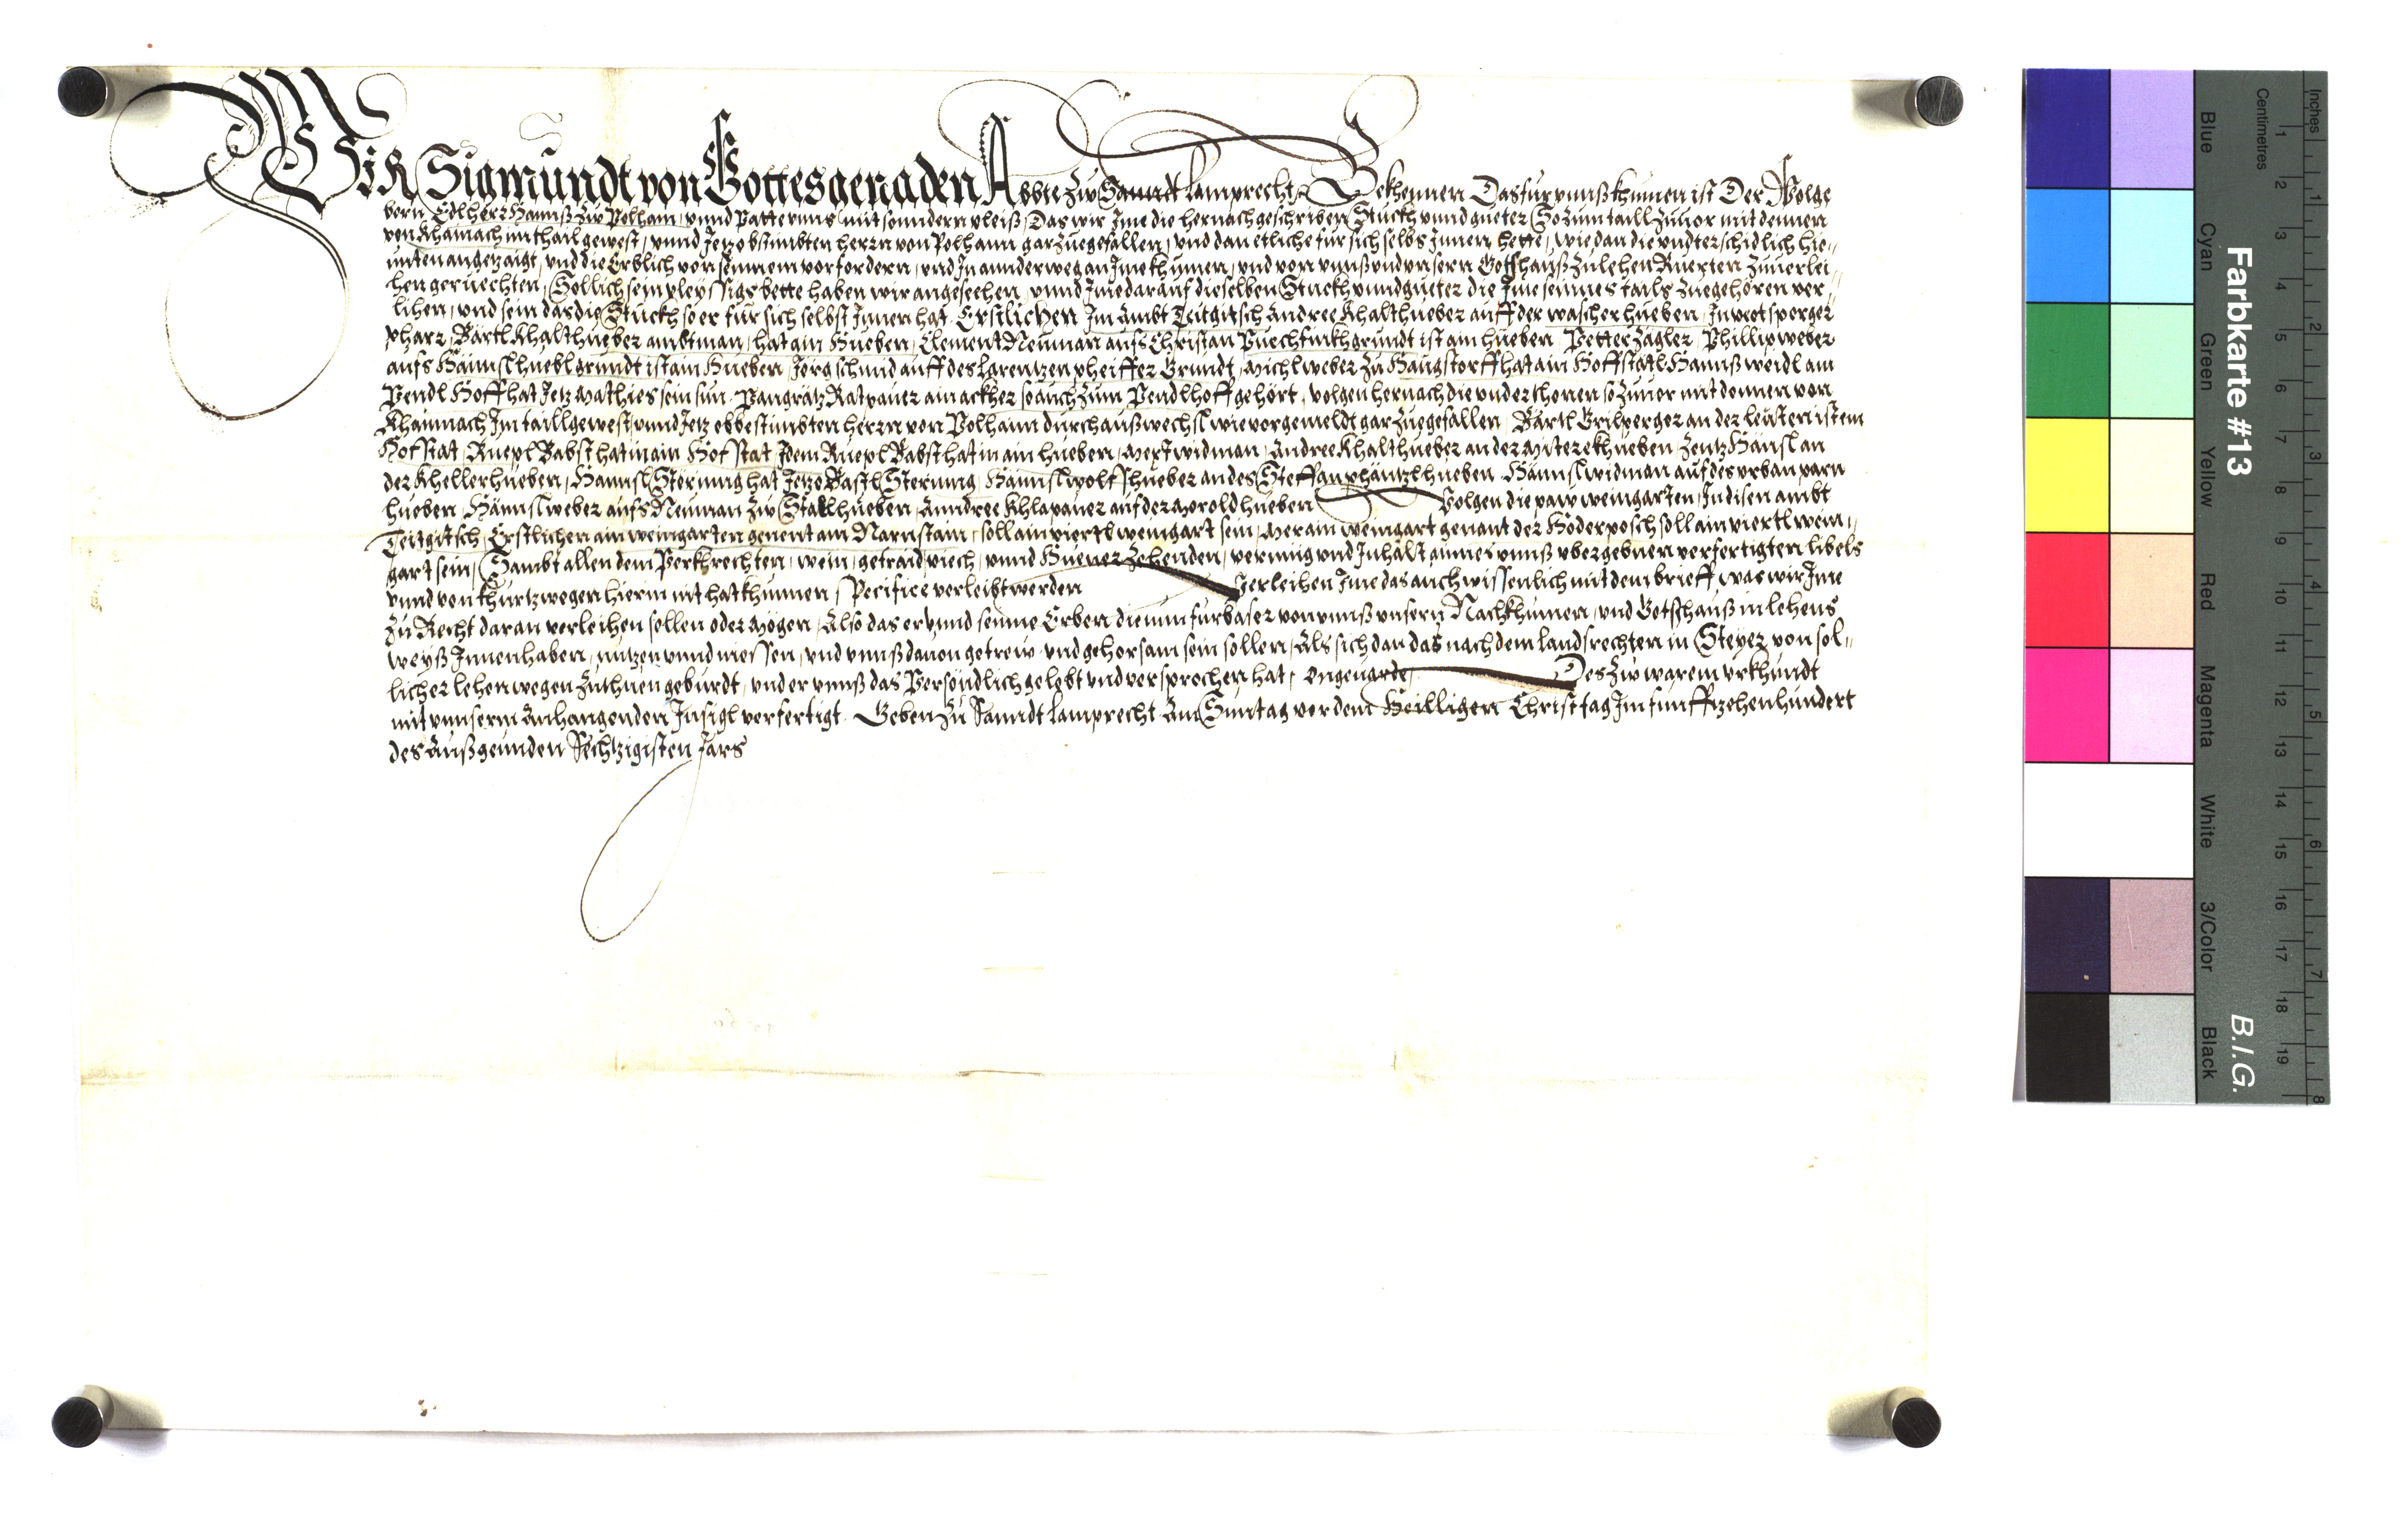 WIR Sigmundt von Gottes genaden Abbte zw Sanndt Lamprecht Bekhennen Das für vnnß khumen ist Der Wolge
born Edl herr Hannß zw Polham, vnnd patte vnns mit sonndern vleiß, Das wir Jme die hernachgeschriben Stuckh vnnd gueter So zum taill zuuor mit dennen
von Khainach im thail gewest, vnnd Jetz obstimbten herrn von Polhann gar zuegefallen, vnd dan etliche für sich selbs Jnnen hette, wie dan die vndterschidlich hie-
unten angezaigt, vnd die Erblich von seinnem vorfordern, vnd Jn annder weg an Jme khumen, vnd von vnnß vnd vnsern Gotshauß zu lehen Ruerten zuuerlei-
hen geruechten, Sollich sein vleyssigs bette haben wir angesechen, vnnd Jme darauf dieselben Stuckh vnnd gueter die Jme seinnes tails zuegehören ver-
lihen, vnd sein das die Stuckh so er für sich selbst Jnnen hat Erstlichen Jm Ambt Teitgitsch Andree Khalthueber auff der wascher hueben, Jn wotsperger
pharr, Bärtl Khalthueber ambtman, hat ain Hueben, Clement Neuman aufs Christan Puechfinkh grundt ist ain hueben, Petter Zägler, Phillip weber
aufs Hännsl huebl grundt ist ain Hueben, Jörg schmid auff des Larentzen pheiffer Grundt, Michl weber zu Haugstorff hat ain Hoffstatl Hannß weidl am
Pendl Hoff hat Jetz Mathies sein sun, Pangrätz Ratpauer ain ackher so auch zum Pendlhoff gehört, volgen hernach die vnderthonen so zuuor mit dennen von
Khainnach Jm taill gewest vnnd Jetz obbestimbten herrn von Polhaim durch außwechsl wie vorgemeldt gar zuegefallen, Bärtl Grilperger an der leuten ist ein
Hofstat, Ruepl Babst hat in ain Hofstat, Jdem Ruepl Babst hat in ain hueben, Mert widman, Andree Khalthueber an der Miterekhueben, Zentz Hänsl an
der Khellerhueben, Hännsl Sterning hat Jetze Bastl Sterning, Hännsl wolfshueber an des Steffan phäntzl hueben, Hännsl widman auf des vrban parn
hueben, Hännsl weber aufs Neuman zw Stallhueben, Anndree Khlapauer auf der Moroldhueben Volgen die paw weingarten, Jn disen ambt
Teitgitsch, Erstlichen ain weingarten genent am Narnstain, soll ain viertl weingart sein, Mer ain weingart genant der Höderposch soll ain viertl wein-
gart sein, Sambt allen dem Perkhrechten, wein, getraid, viech, vnnd Huener Zehenden, vermüg vnd Jnhalt ainnes vnnß vbergebnen verfertigten libels
vnnd von khurtz wegen hierin nit hat khumen, specifice verleibt werden Verleihen Jme das auch wissenlich mit dem brieff, was wir Jme
zu Recht daran verleihen sollen oder Mögen, Also das er vnnd seinne Erben die nun fürbaser von vnnß vnsern Nachkhumen, vnd Gotshauß in lehens
weyß Jnnen haben, nutzen vnnd niessen, vnd vnnß dauon getrew vnd gehorsam sein sollen, Als sich dan das nach dem Landsrechten in Steyer von sol-
licher lehen wegen zu thuen geburdt, vnd er vnnß das Persöndlich gelobt vnd versprochen hat, ongeuarte, Des zw warem vrkhundt
mit vnnserm Anhangenden Jnsigl verfertigt Geben zu Sanndt Lamprecht Am Suntag vor dem Heilligen Christtag Jm funffzehenhundert
des Außgeunden Sechtzigisten Jars